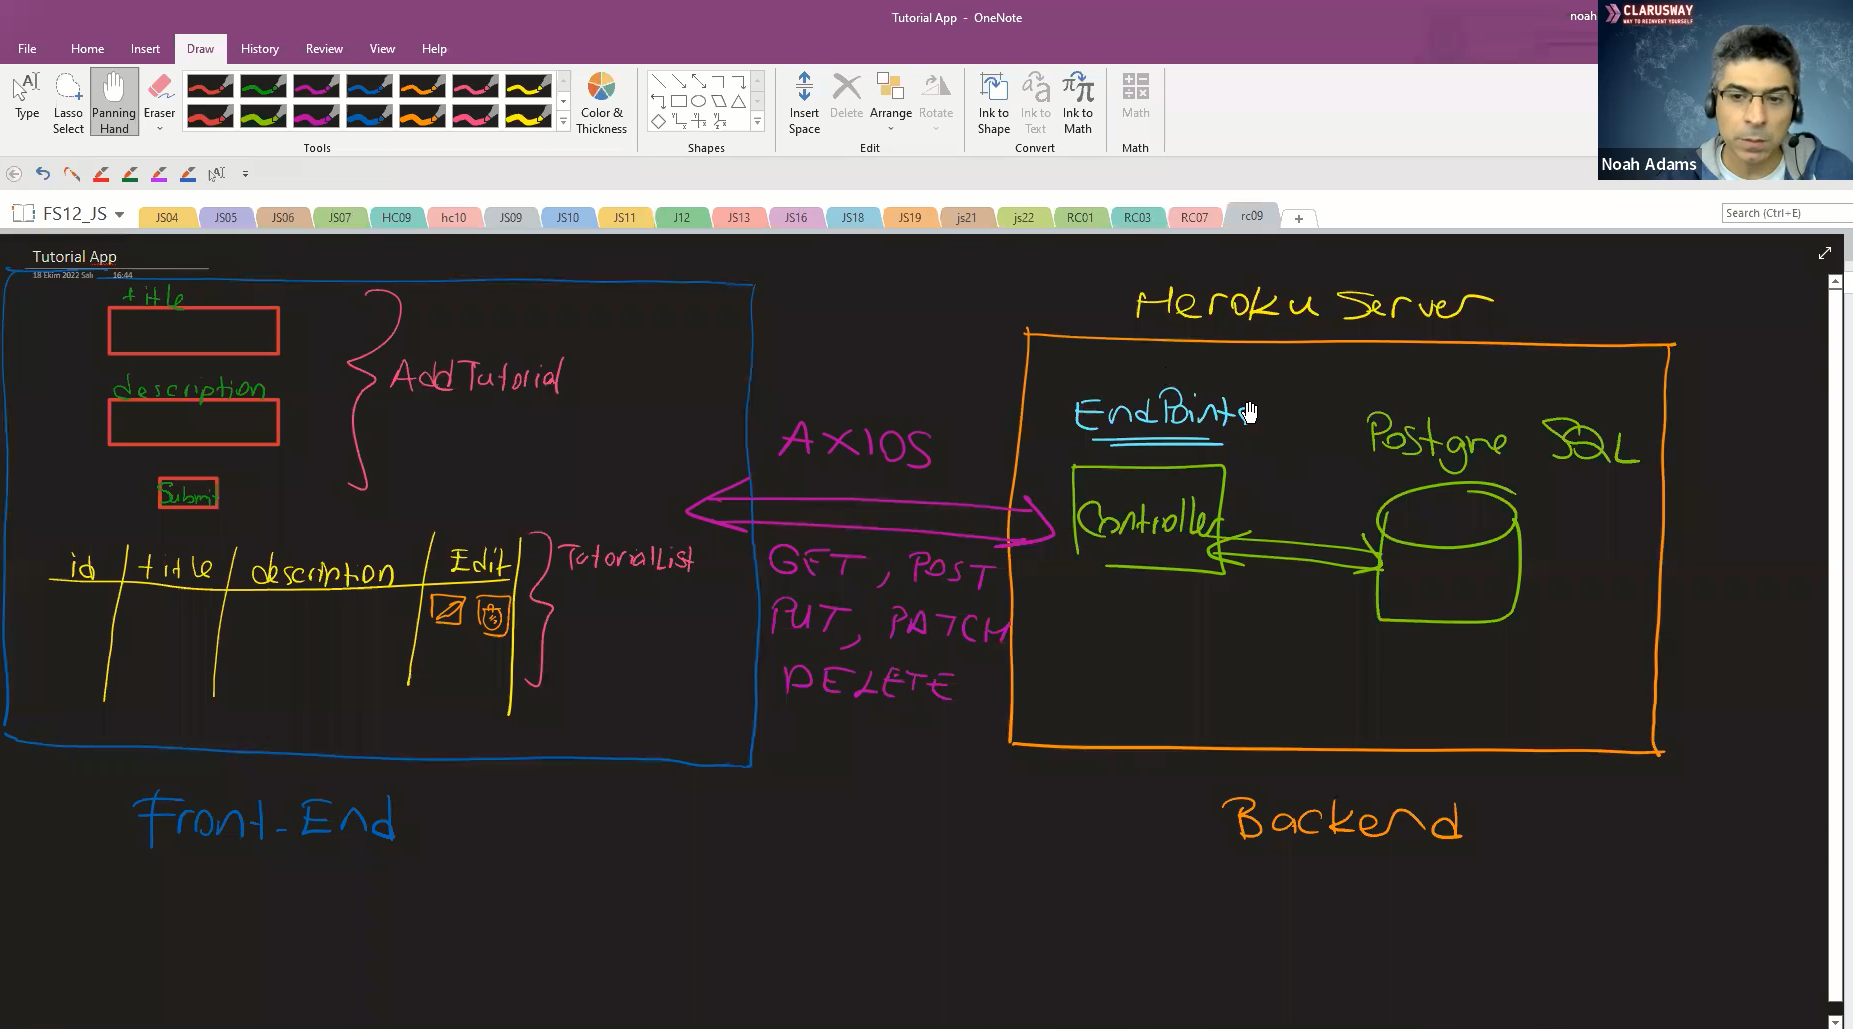 Tutorial App - OneNote
noah
CLARUSWAY
WAY TO REINVENT YOURSELF
File Home Insert Draw History Review View Help
Type
Lasso Select
Panning Hand
Eraser
Color & Thickness
Insert Space
Delete
Arrange
Rotate
Ink to Shape
Ink to Text
Ink to Math
Math
Tools Shapes Edit Convert Math
Noah Adams
FS12_JS JS04 JS05 JS06 JS07 HC09 hc10 JS09 JS10 JS11 J12 JS13 JS16 JS18 JS19 js21 js22 RC01 RC03 RC07 rc09
Search (Ctrl+E)
Tutorial App
18 Ekim 2022 Salı 16:44
title
description
Submit
AddTutorial
id title description Edit
TutorialList
Front-End
AXIOS
GET, POST
PUT, PATCH
DELETE
Heroku Server
EndPoints
Controller
Postgre SQL
Backend